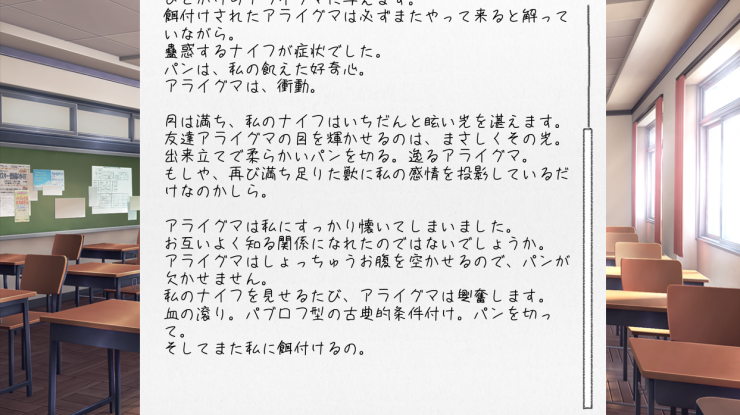 餌付けされたアライグマは必ずまたやって来ると解って
いながら。
蠱惑するナイフが症状でした。
パンは、私の飢えた好奇心。
アライグマは、衝動。
月は満ち、私のナイフはいちだんと眩い光を湛えます。
友達アライグマの目を輝かせるのは、まさしくその光。
出来立てで柔らかいパンを切る。逸るアライグマ。
もしや、再び満ち足りた獣に私の感情を投影しているだ
けなのかしら。
アライグマは私にすっかり懐いてしまいました。
お互いよく知る関係になれたのではないでしょうか。
アライグマはしょっちゅうお腹を空かせるので、パンが
欠かせません。
私のナイフを見せるたび、アライグマは興奮します。
血の滾り。パブロフ型の古典的条件付け。パンを切っ
て。
そしてまた私に餌付けるの。